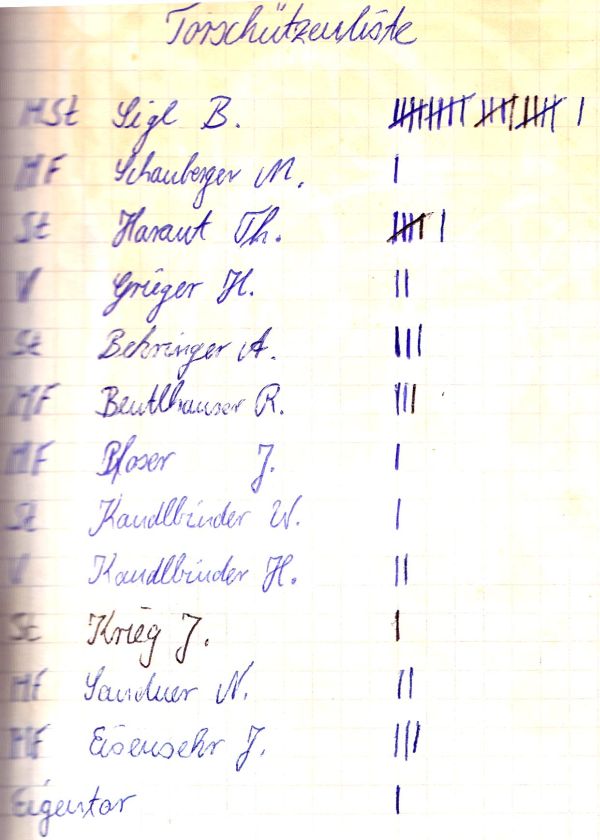 Torschützenliste
MSt Sigl B. 𝍸𝍸 𝍸𝍸 |
MF Schauberger M. |
St Haraut Th. 𝍸 |
V Grieger H. ||
St Behringer A. |||
MF Beutlhauser R. |||
MF Ploser J. |
St Kandlbinder W. |
V Kandlbinder H. ||
St Krieg J. |
MF Sanduer N. ||
MF Eisensehr J. |||
Eigentor |